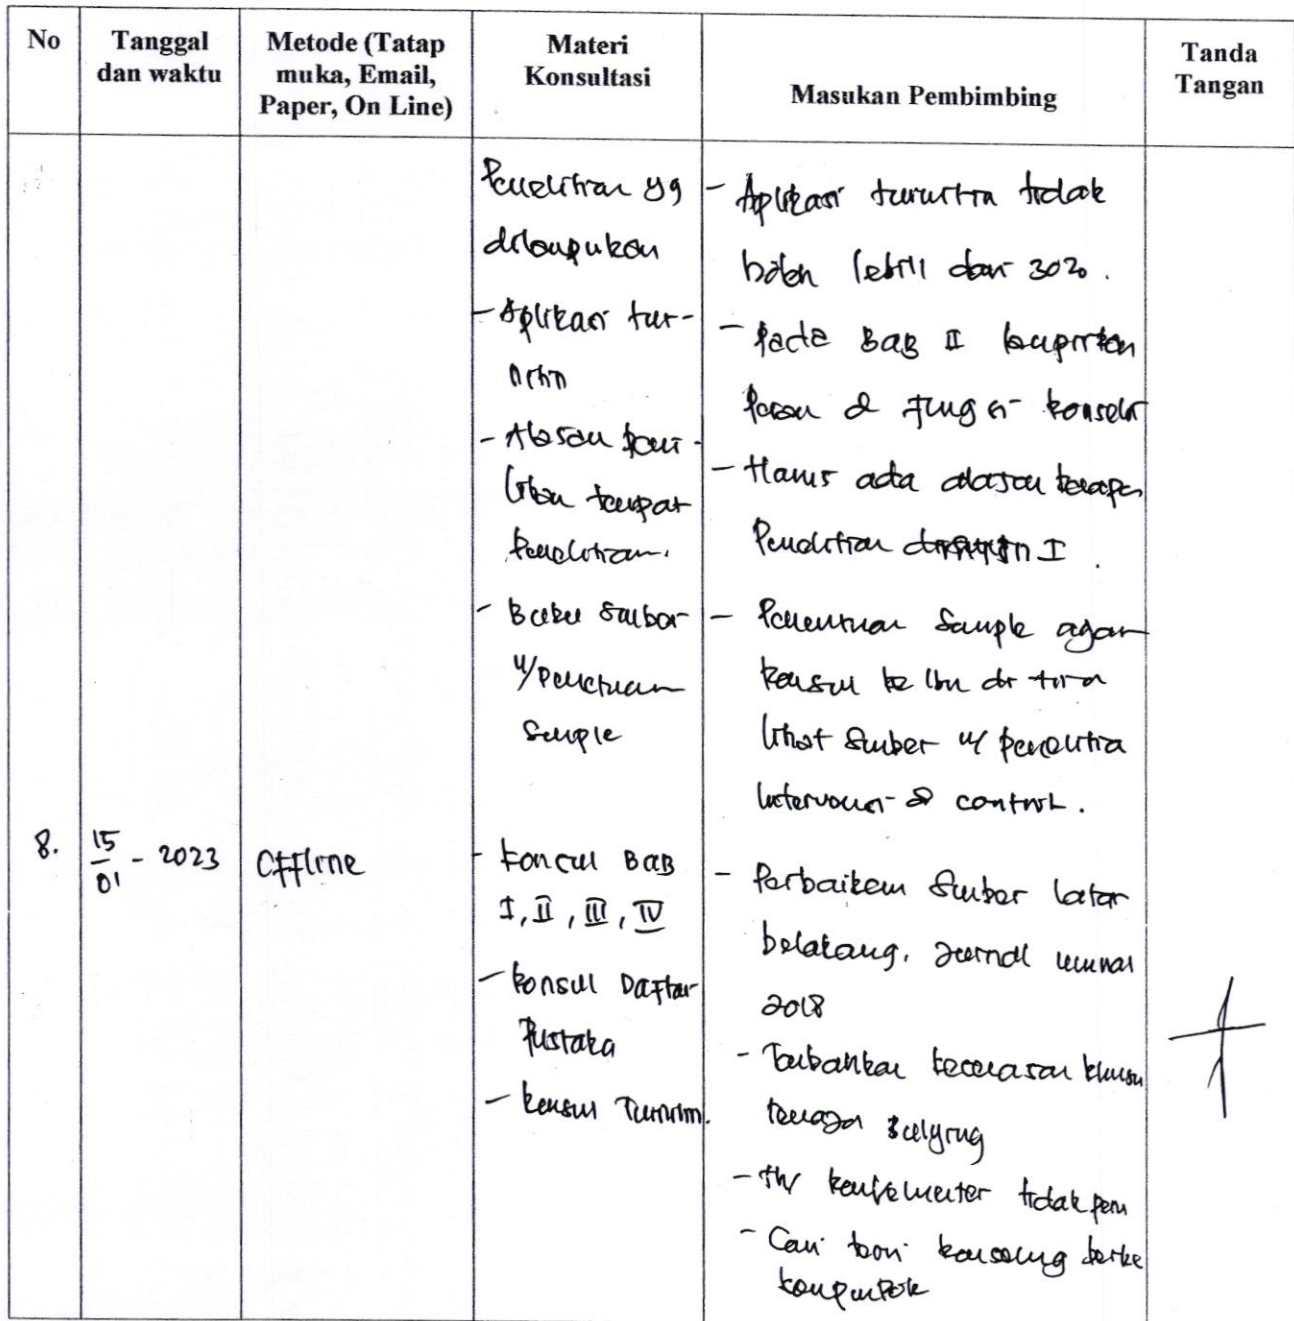 No
Tanggal
dan waktu
Metode (Tatap
muka, Email,
Paper, On Line)
Materi
Konsultasi
Masukan Pembimbing
Tanda
Tangan
Penelitian yg
dilakukan
- Aplikasi tur-
nitin
- Alasan pemi-
lihan tempat
Penelitian.
- Buku sumber
u/ penentuan
Sample
- Aplikasi turnitin tidak
boleh lebih dari 30%.
- Pada BAB II
Peran & Fungsi konselor
- Harus ada alasan kenapa
Penelitian I.
- Penentuan Sample agar
konsul ke Ibu
lihat Sumber u/ penelitian
Intervensi & control.
8.
15
01 - 2023
Offline
- Konsul BAB
I, II, III, IV
- Konsul Daftar
Pustaka
- Konsul Turnitin.
- Perbaikan Sumber latar
belakang, Jurnal
2018
- Tambahkan kecemasan
- tidak
- Cari teori konseling